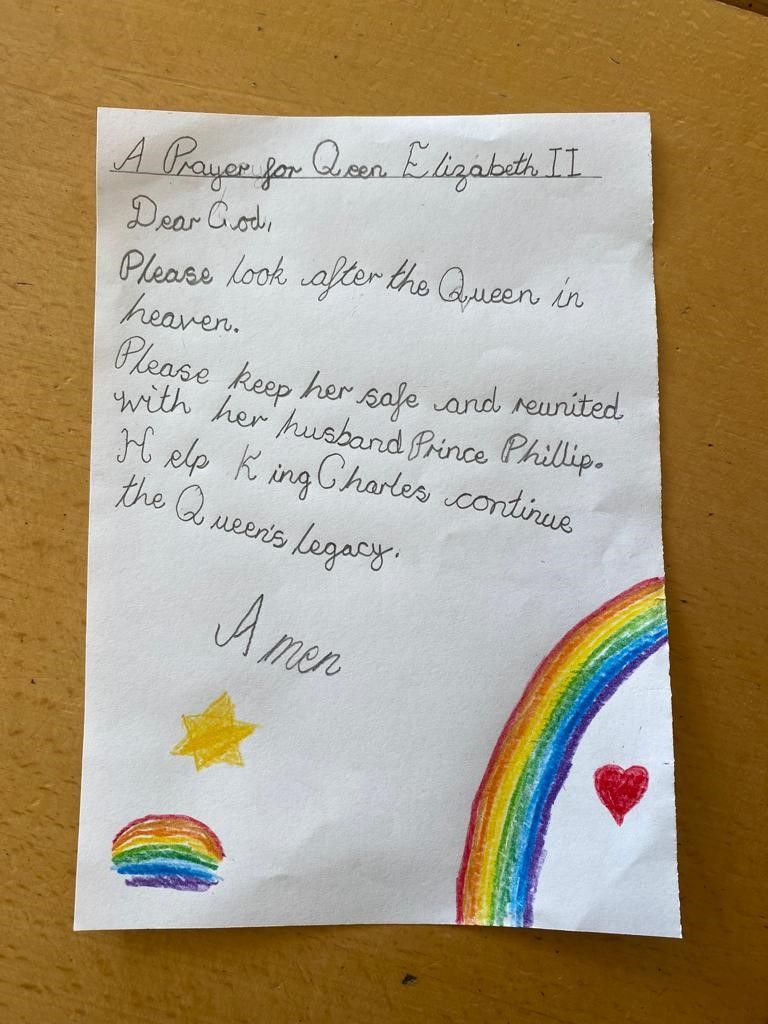 A Prayer for Qeen Elizabeth II
Dear God,
Please look after the Queen in
heaven.
Please keep her safe and reunited
with her husband Prince Phillip.
Help King Charles continue
the Queen's legacy.
Amen